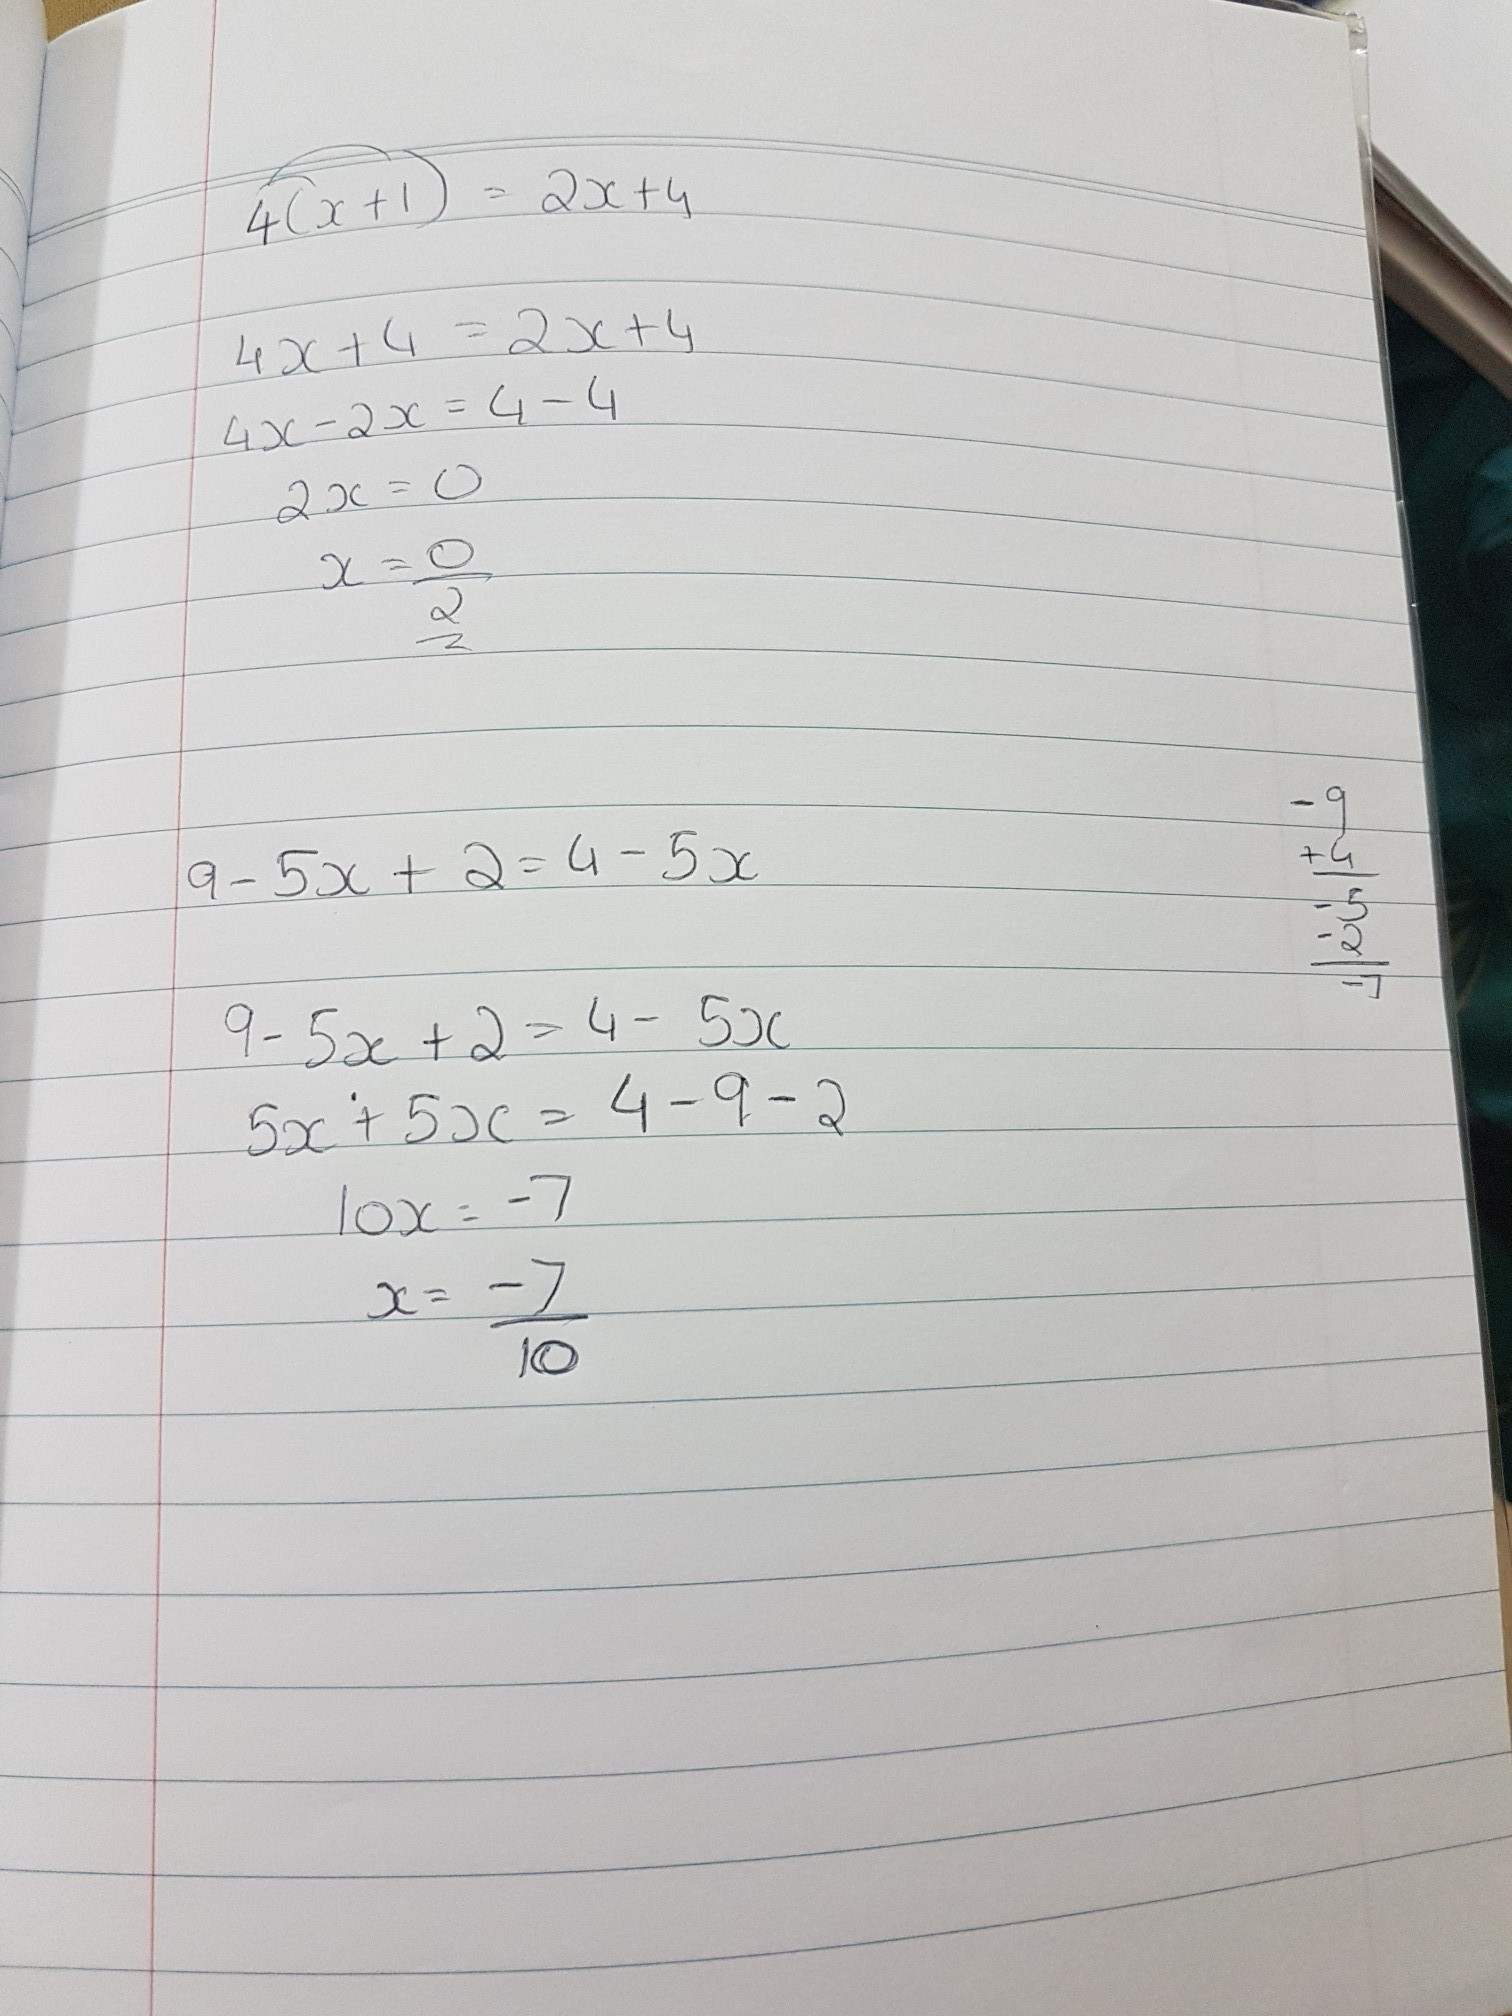 4(x+1) = 2x+4
4x+4 = 2x+4
4x-2x = 4-4
2x = 0
x = 0
2
9-5x+2 = 4-5x
9-5x+2 = 4-5x
5x+5x = 4-9-2
10x = -7
x = -7
10
-9
+4
-5
-2
-7